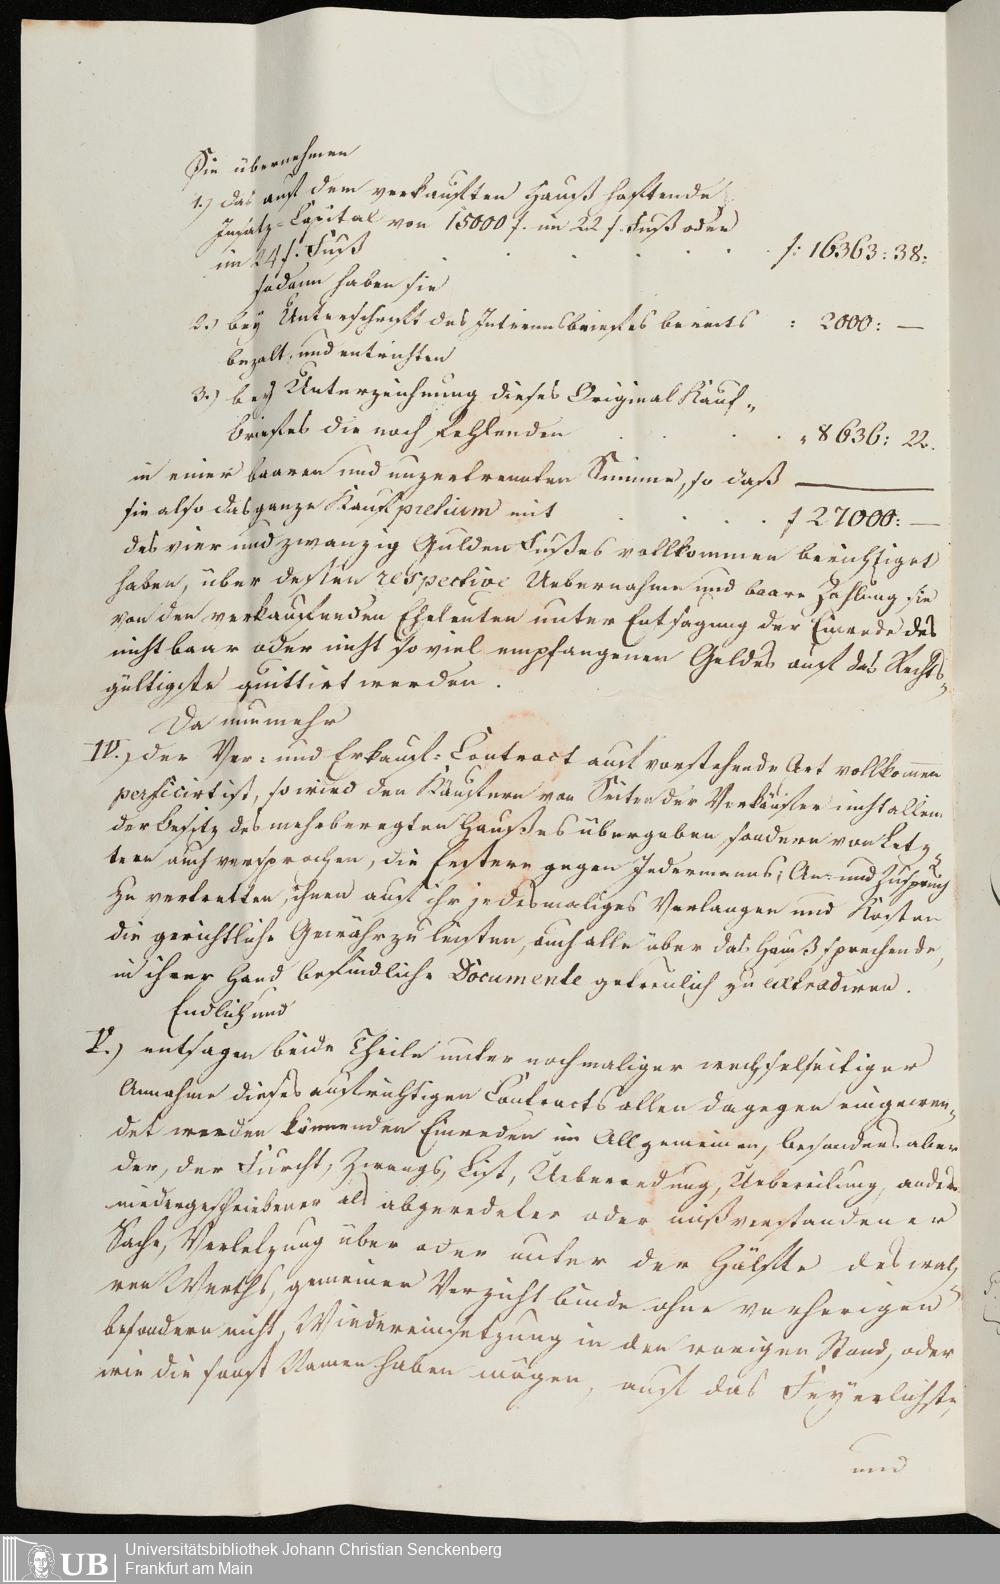 Sie übernehmen
1.) das auf dem verkauften Hauß haftende
Insatz-Capital von 15000 f. im 22 f. Fuß oder
im 24 f. Fuß . . . . . . f: 16363:38:
sodann haben sie
2.) bey Unterschrift des Interimsbriefes bereits : 2000: —
bezalt, und entrichten
3.) bey Unterzeichnung dieses Original Kauf-
briefes die noch fehlenden . . . . „ 8636: 22.
in einer baaren und unzertrennten Summe, so daß
sie also das ganze Kaufpretium mit . . . . f 27000: —
des vier und zwanzig Gulden Fußes vollkommen berichtiget
haben, über dessen respective Uebernahme und baare Zahlung sie
von den verkaufenden Eheleuten unter Entsagung der Einrede des
nicht baar oder nicht so viel empfangenen Geldes auf das Rechts-
gültigste quittirt werden.
Da nunmehr
IV.) der Ver- und Erkauf-Contract auf vorstehende Art vollkommen
perficirt ist, so wird den Käufern von Seiten der Verkäufer nicht allein
der Besitz des mehrberegten Haußes übergeben, sondern von Letz-
tern auch versprochen, die Erstern gegen Jedermanns An- und Zuspruch
zu vertretten, ihnen auf ihr jedesmaliges Verlangen und Kosten
die gerichtliche Gewähr zu leisten, auch alle über das Hauß sprechende,
in ihrer Hand befindliche Documente getreulich zu extradiren.
Endlich und
V.) entsagen beide Theile unter nochmaliger wechselseitiger
Annahme dieses aufrichtigen Contracts allen dagegen eingewen-
det werden könnenden Einreden im Allgemeinen, besonders aber
der, der Furcht, Zwangs, List, Ueberredung, Uebereilung, anders
niedergeschriebener als abgeredeter oder mißverstandener
Sache, Verletzung über oder unter der Hälfte des wah-
ren Werths, gemeiner Verzicht binde ohne vorherigen
besondern nicht, Wiedereinsetzung in den vorigen Stand, oder
wie die sonst Namen haben mögen, auf das Feyerlichste,
und
Universitätsbibliothek Johann Christian Senckenberg
Frankfurt am Main
UB